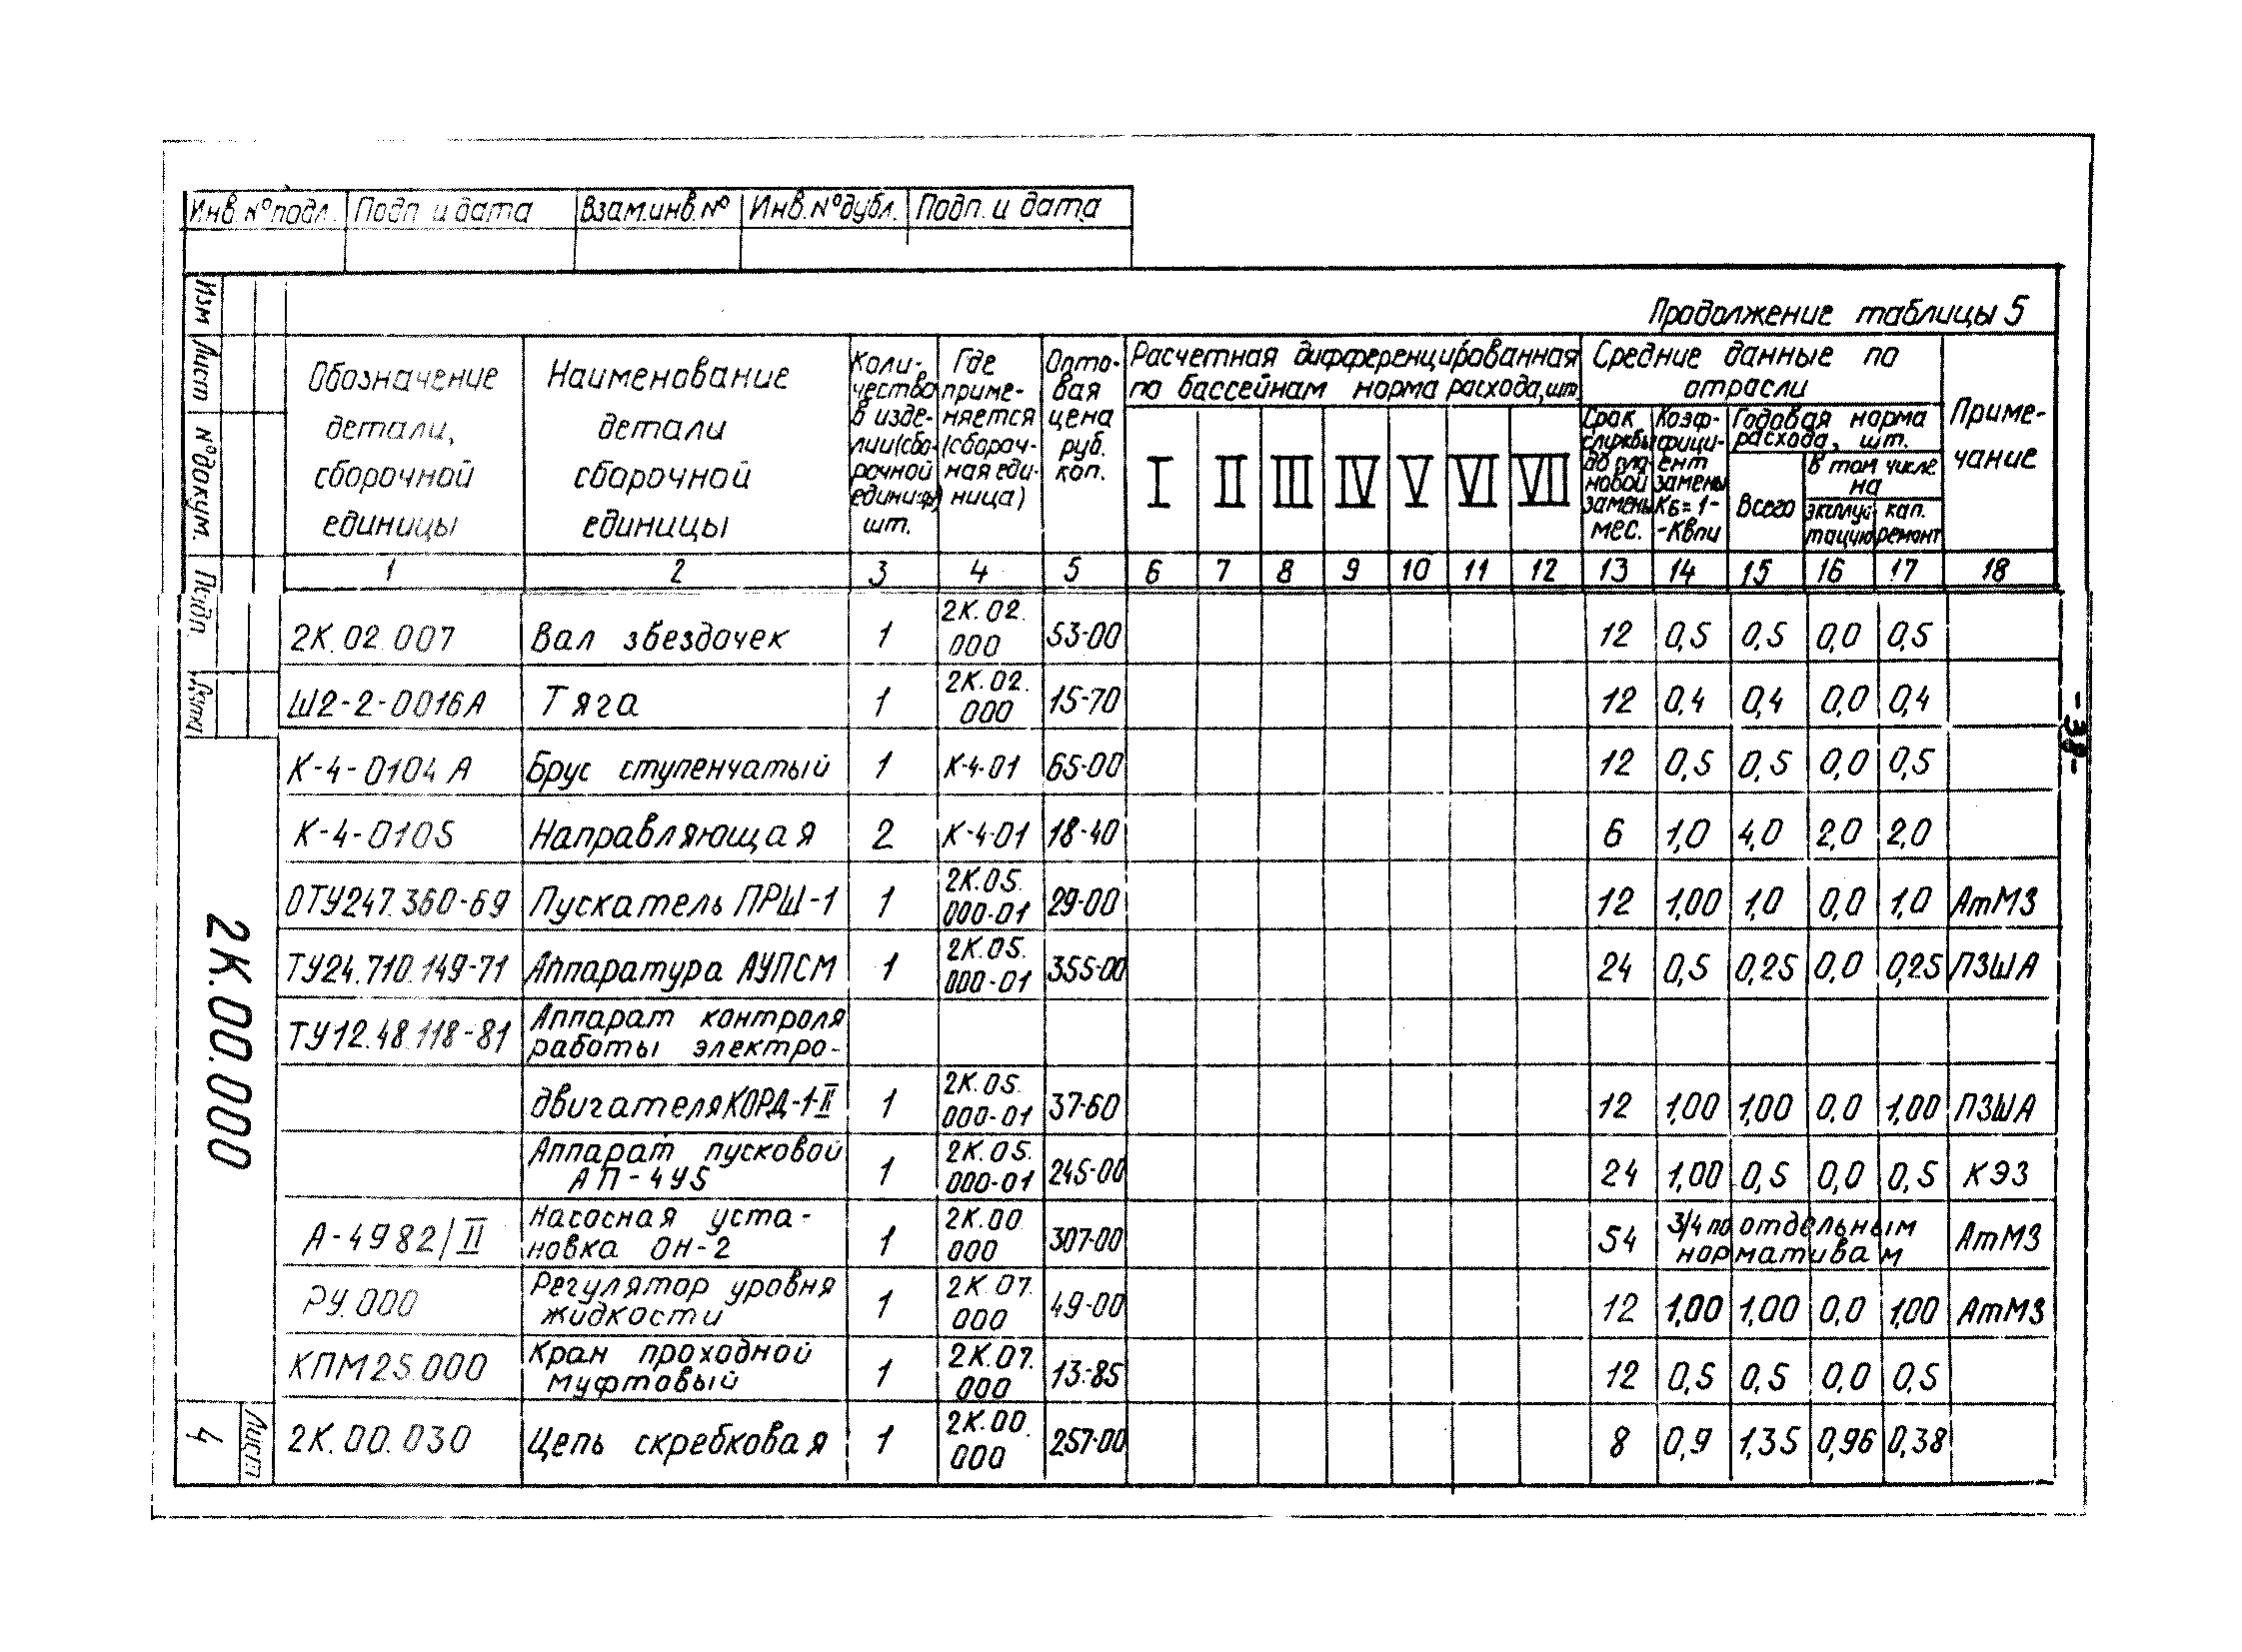 Инв.№подл. Подп. и дата Взам.инв.№ Инв.№дубл. Подп. и дата
Продолжение таблицы 5
Обозначение детали, сборочной единицы
Наименование детали сборочной единицы
Количество в изделии(сборочной единице) шт.
Где применяется (сборочная единица)
Оптовая цена руб. коп.
Расчетная дифференцированная по бассейнам норма расхода,шт.
I II III IV V VI VII
Средние данные по отрасли
Срок службы до плановой замены мес.
Коэффициент замены Кб=1--Квпи
Годовая норма расхода, шт.
Всего
в том числе на
эксплуатацию
кап. ремонт
Примечание
1 2 3 4 5 6 7 8 9 10 11 12 13 14 15 16 17 18
2К.02.007 Вал звездочек 1 2К.02.000 53-00 12 0,5 0,5 0,0 0,5
Ш2-2-0016А Тяга 1 2К.02.000 15-70 12 0,4 0,4 0,0 0,4
К-4-0104А Брус ступенчатый 1 К-4-01 65-00 12 0,5 0,5 0,0 0,5
К-4-0105 Направляющая 2 К-4-01 18-40 6 1,0 4,0 2,0 2,0
ОТУ247.360-69 Пускатель ПРШ-1 1 2К.05.000-01 29-00 12 1,00 1,0 0,0 1,0 АтМЗ
ТУ24.710.149-71 Аппаратура АУПСМ 1 2К.05.000-01 355-00 24 0,5 0,25 0,0 0,25 ПЗША
ТУ12.48.118-81 Аппарат контроля работы электро-
двигателя КОРД-1-II 1 2К.05.000-01 37-60 12 1,00 1,00 0,0 1,00 ПЗША
Аппарат пусковой АП-4У5 1 2К.05.000-01 245-00 24 1,00 0,5 0,0 0,5 КЭЗ
А-4982/II Насосная установка ОН-2 1 2К.00.000 307-00 54 3/4 по отдельным нормативам АтМЗ
РУ.000 Регулятор уровня жидкости 1 2К.07.000 49-00 12 1,00 1,00 0,0 1,00 АтМЗ
КПМ25.000 Кран проходной муфтовый 1 2К.07.000 13-85 12 0,5 0,5 0,0 0,5
2К.00.030 Цепь скребковая 1 2К.00.000 257-00 8 0,9 1,35 0,96 0,38
Изм Лист №докум. Подп. Дата
2К.00.000
Лист
4
-38-